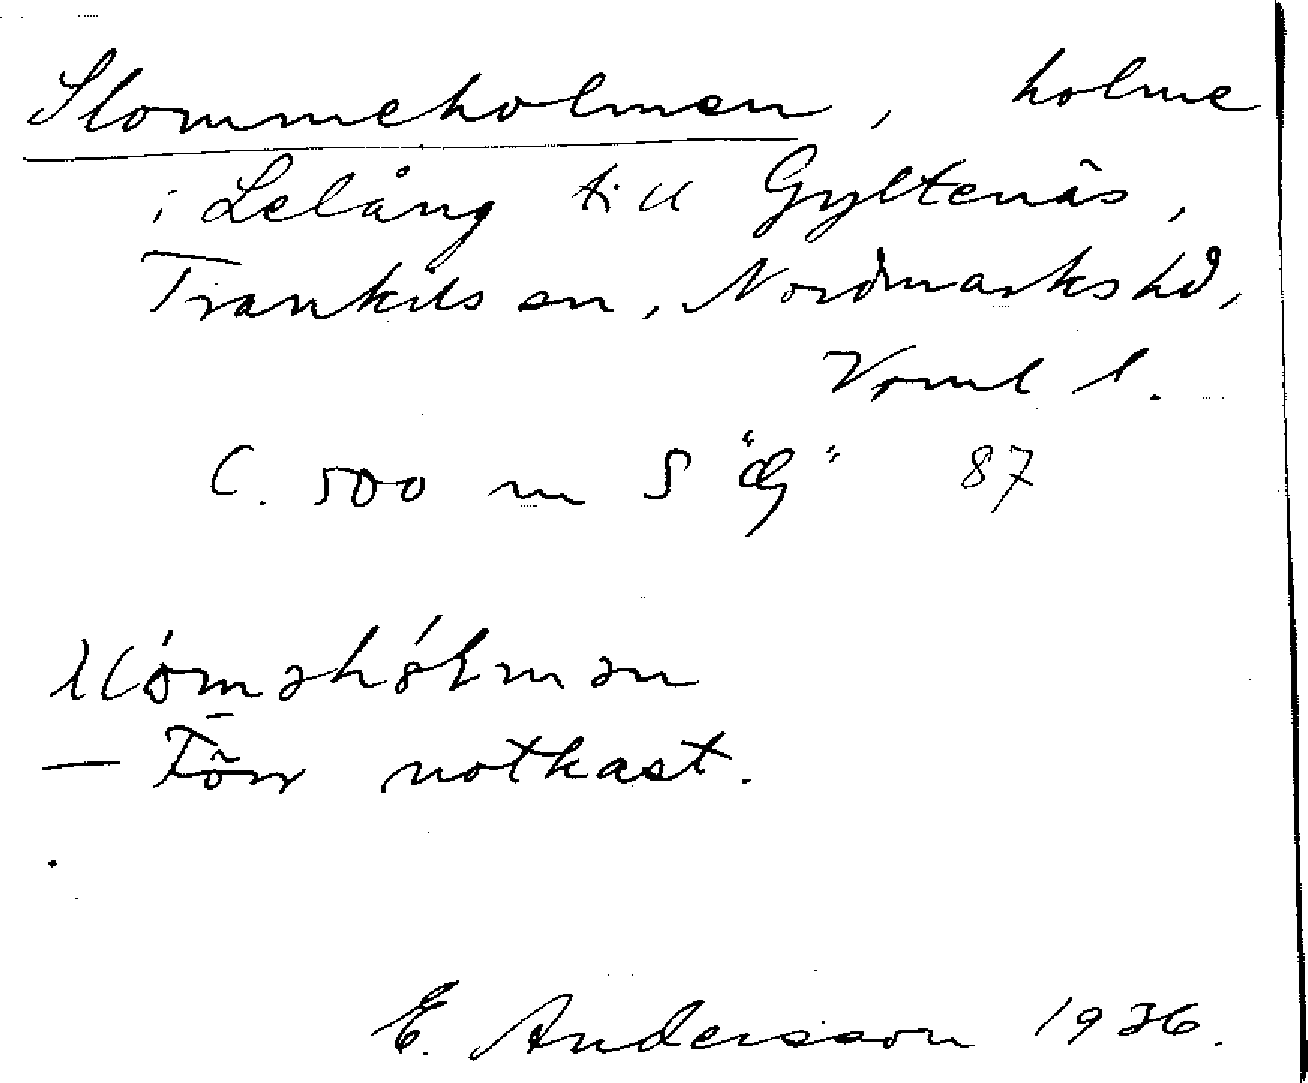 Slommeholmen, holme
i Lelång till Gyltenäs,
Trankils sn, Nordmarks hd,
Verml l.
C. 500 m S "G" 87
– Förr notkast.
E. Andersson 1936.